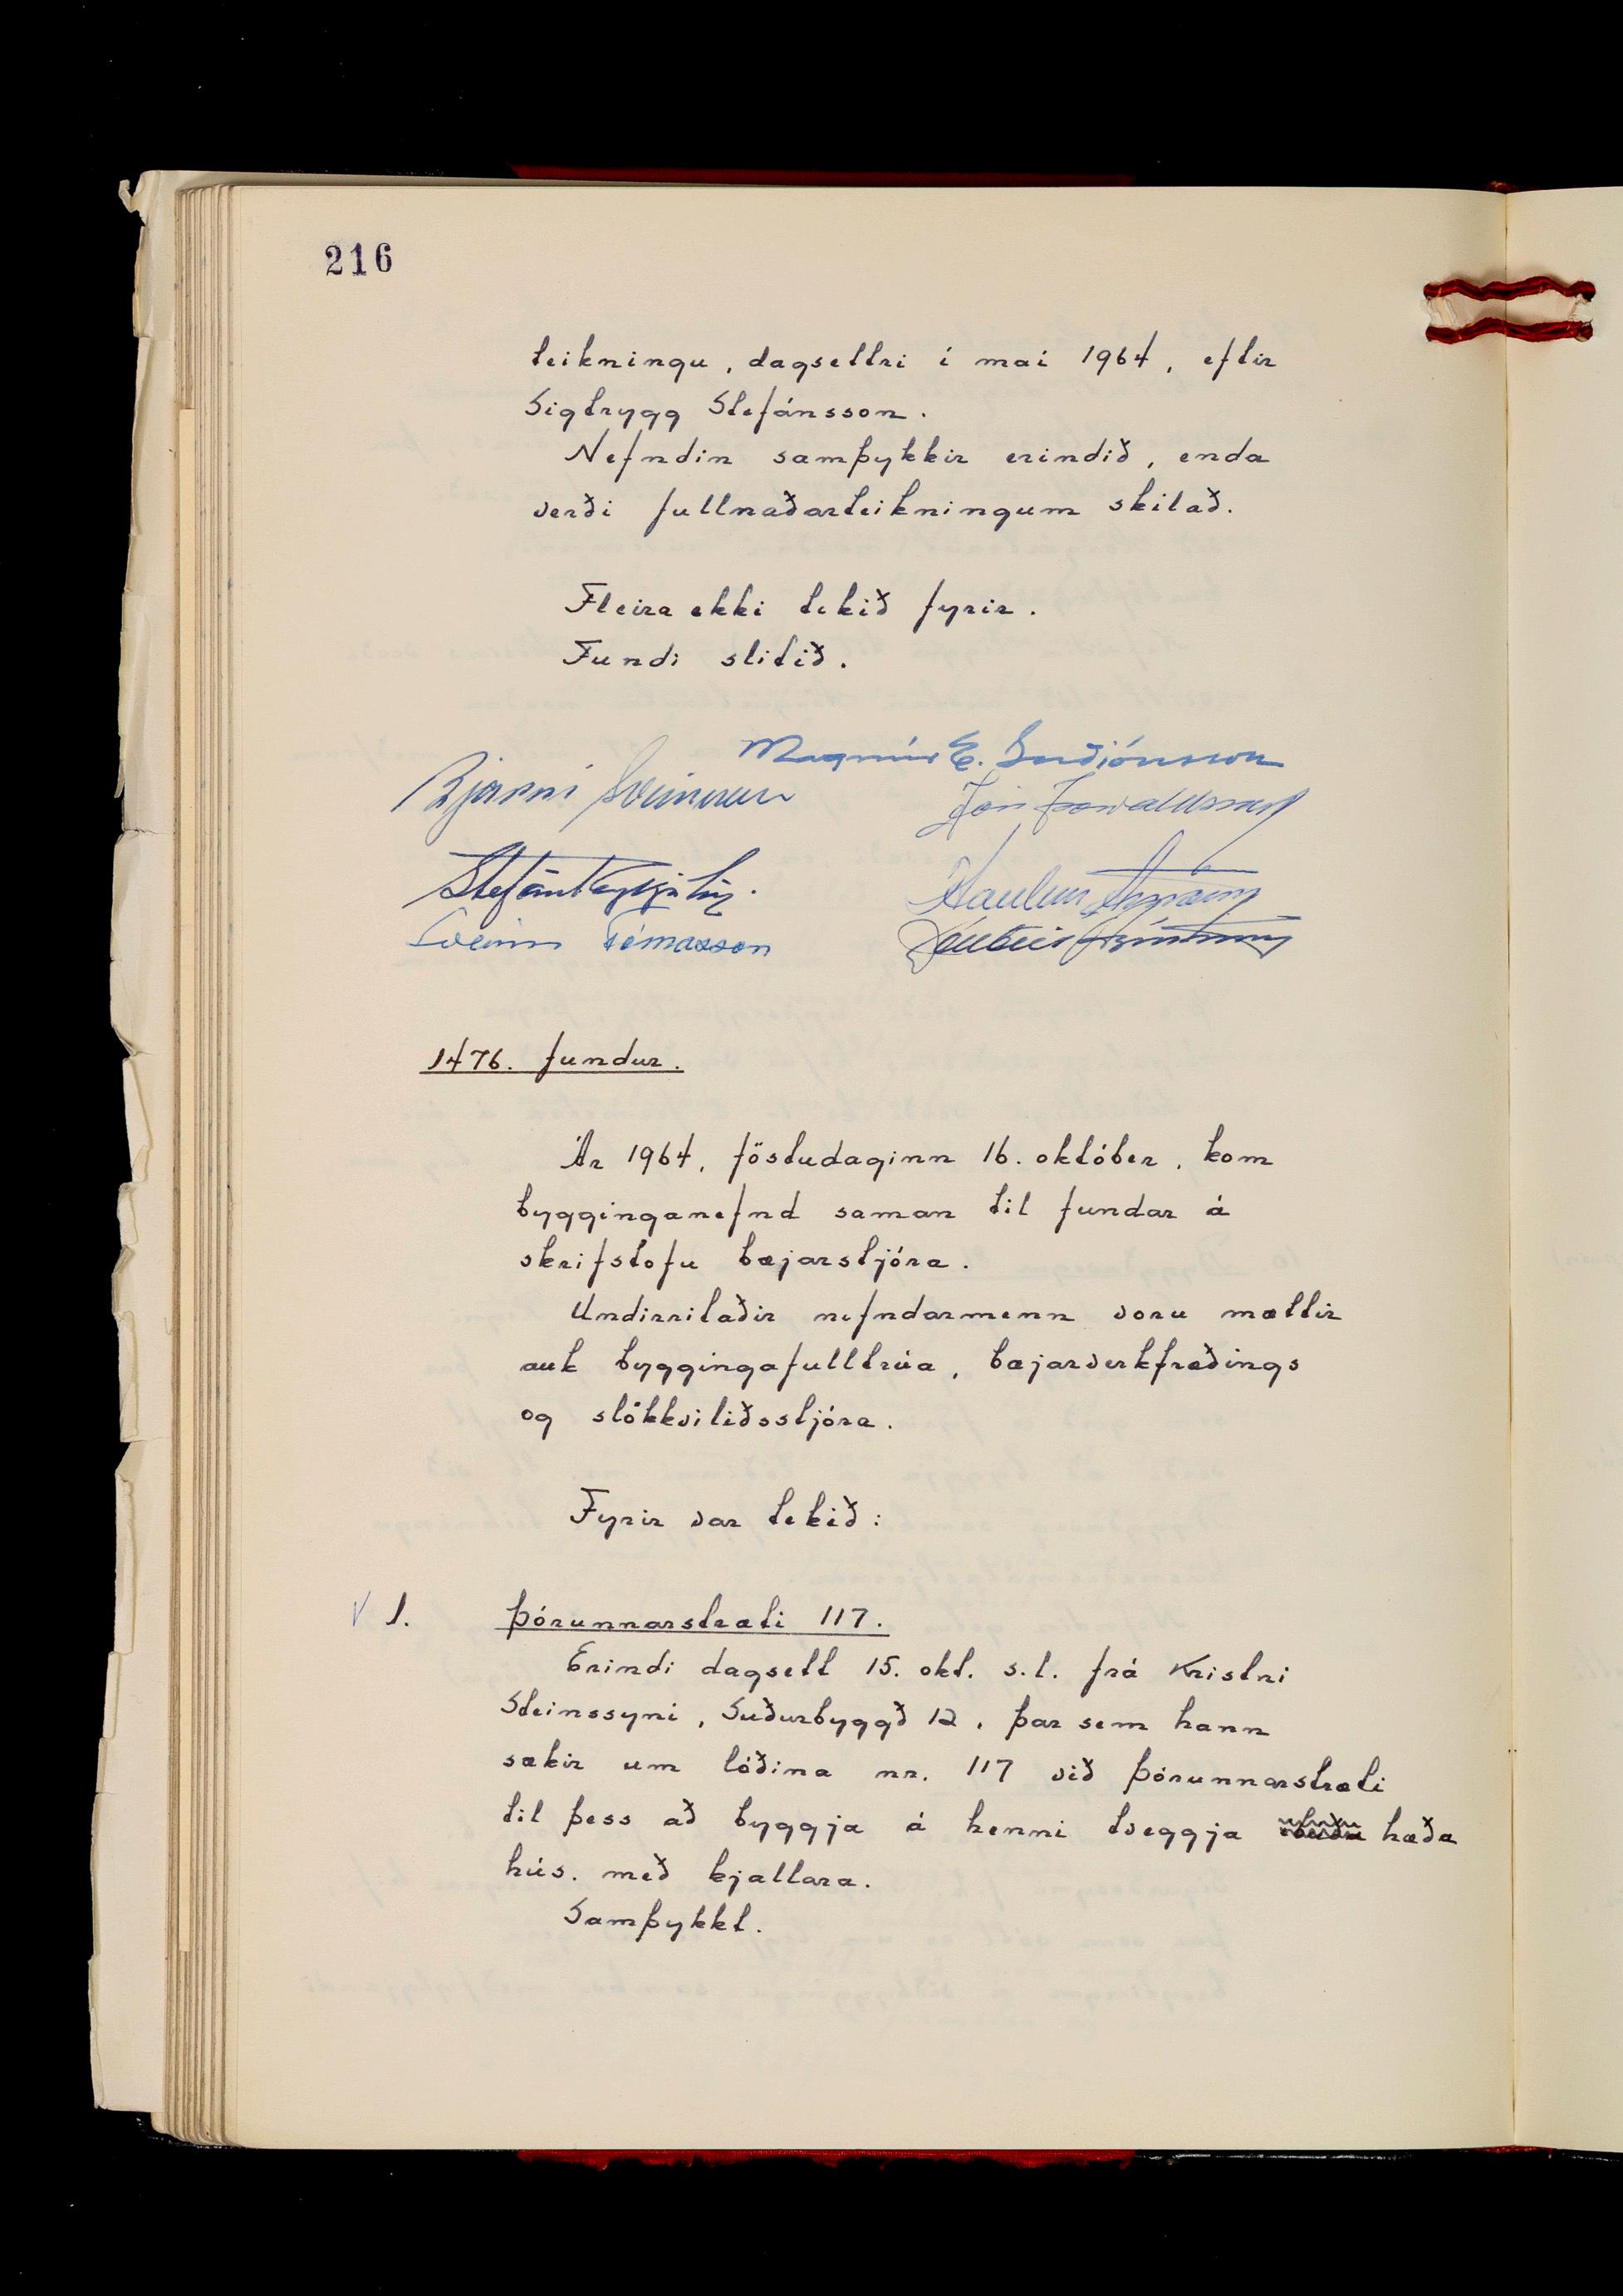 216
teikningu, dagsettri í maí 1964, eftir
Sigtrygg Stefánsson.
Nefndin samþykkir erindið, enda
verði fullnaðarteikningum skilað.
Fleira ekki tekið fyrir.
Fundi slitið.
Magnús E. Guðjónsson
Bjarni Sveinsson
Jón Þorvaldsson
Stefán Reykjalín
Haukur
Sveinn Tómasson
1476. fundur.
Ár 1964, föstudaginn 16. október, kom
bygginganefnd saman til fundar á
skrifstofu bæjarstjóra.
Undirritaðir nefndarmenn voru mættir
auk byggingafulltrúa, bæjarverkfræðings
og slökkviliðsstjóra.
Fyrir var tekið:
V 1. Þórunnarstræti 117.
Erindi dagsett 15. okt. s.l. frá Kristni
Steinssyni, Suðurbyggð 12, þar sem hann
sækir um lóðina nr. 117 við Þórunnarstræti
til þess að byggja á henni tveggja hæða
hús. með kjallara.
Samþykkt.